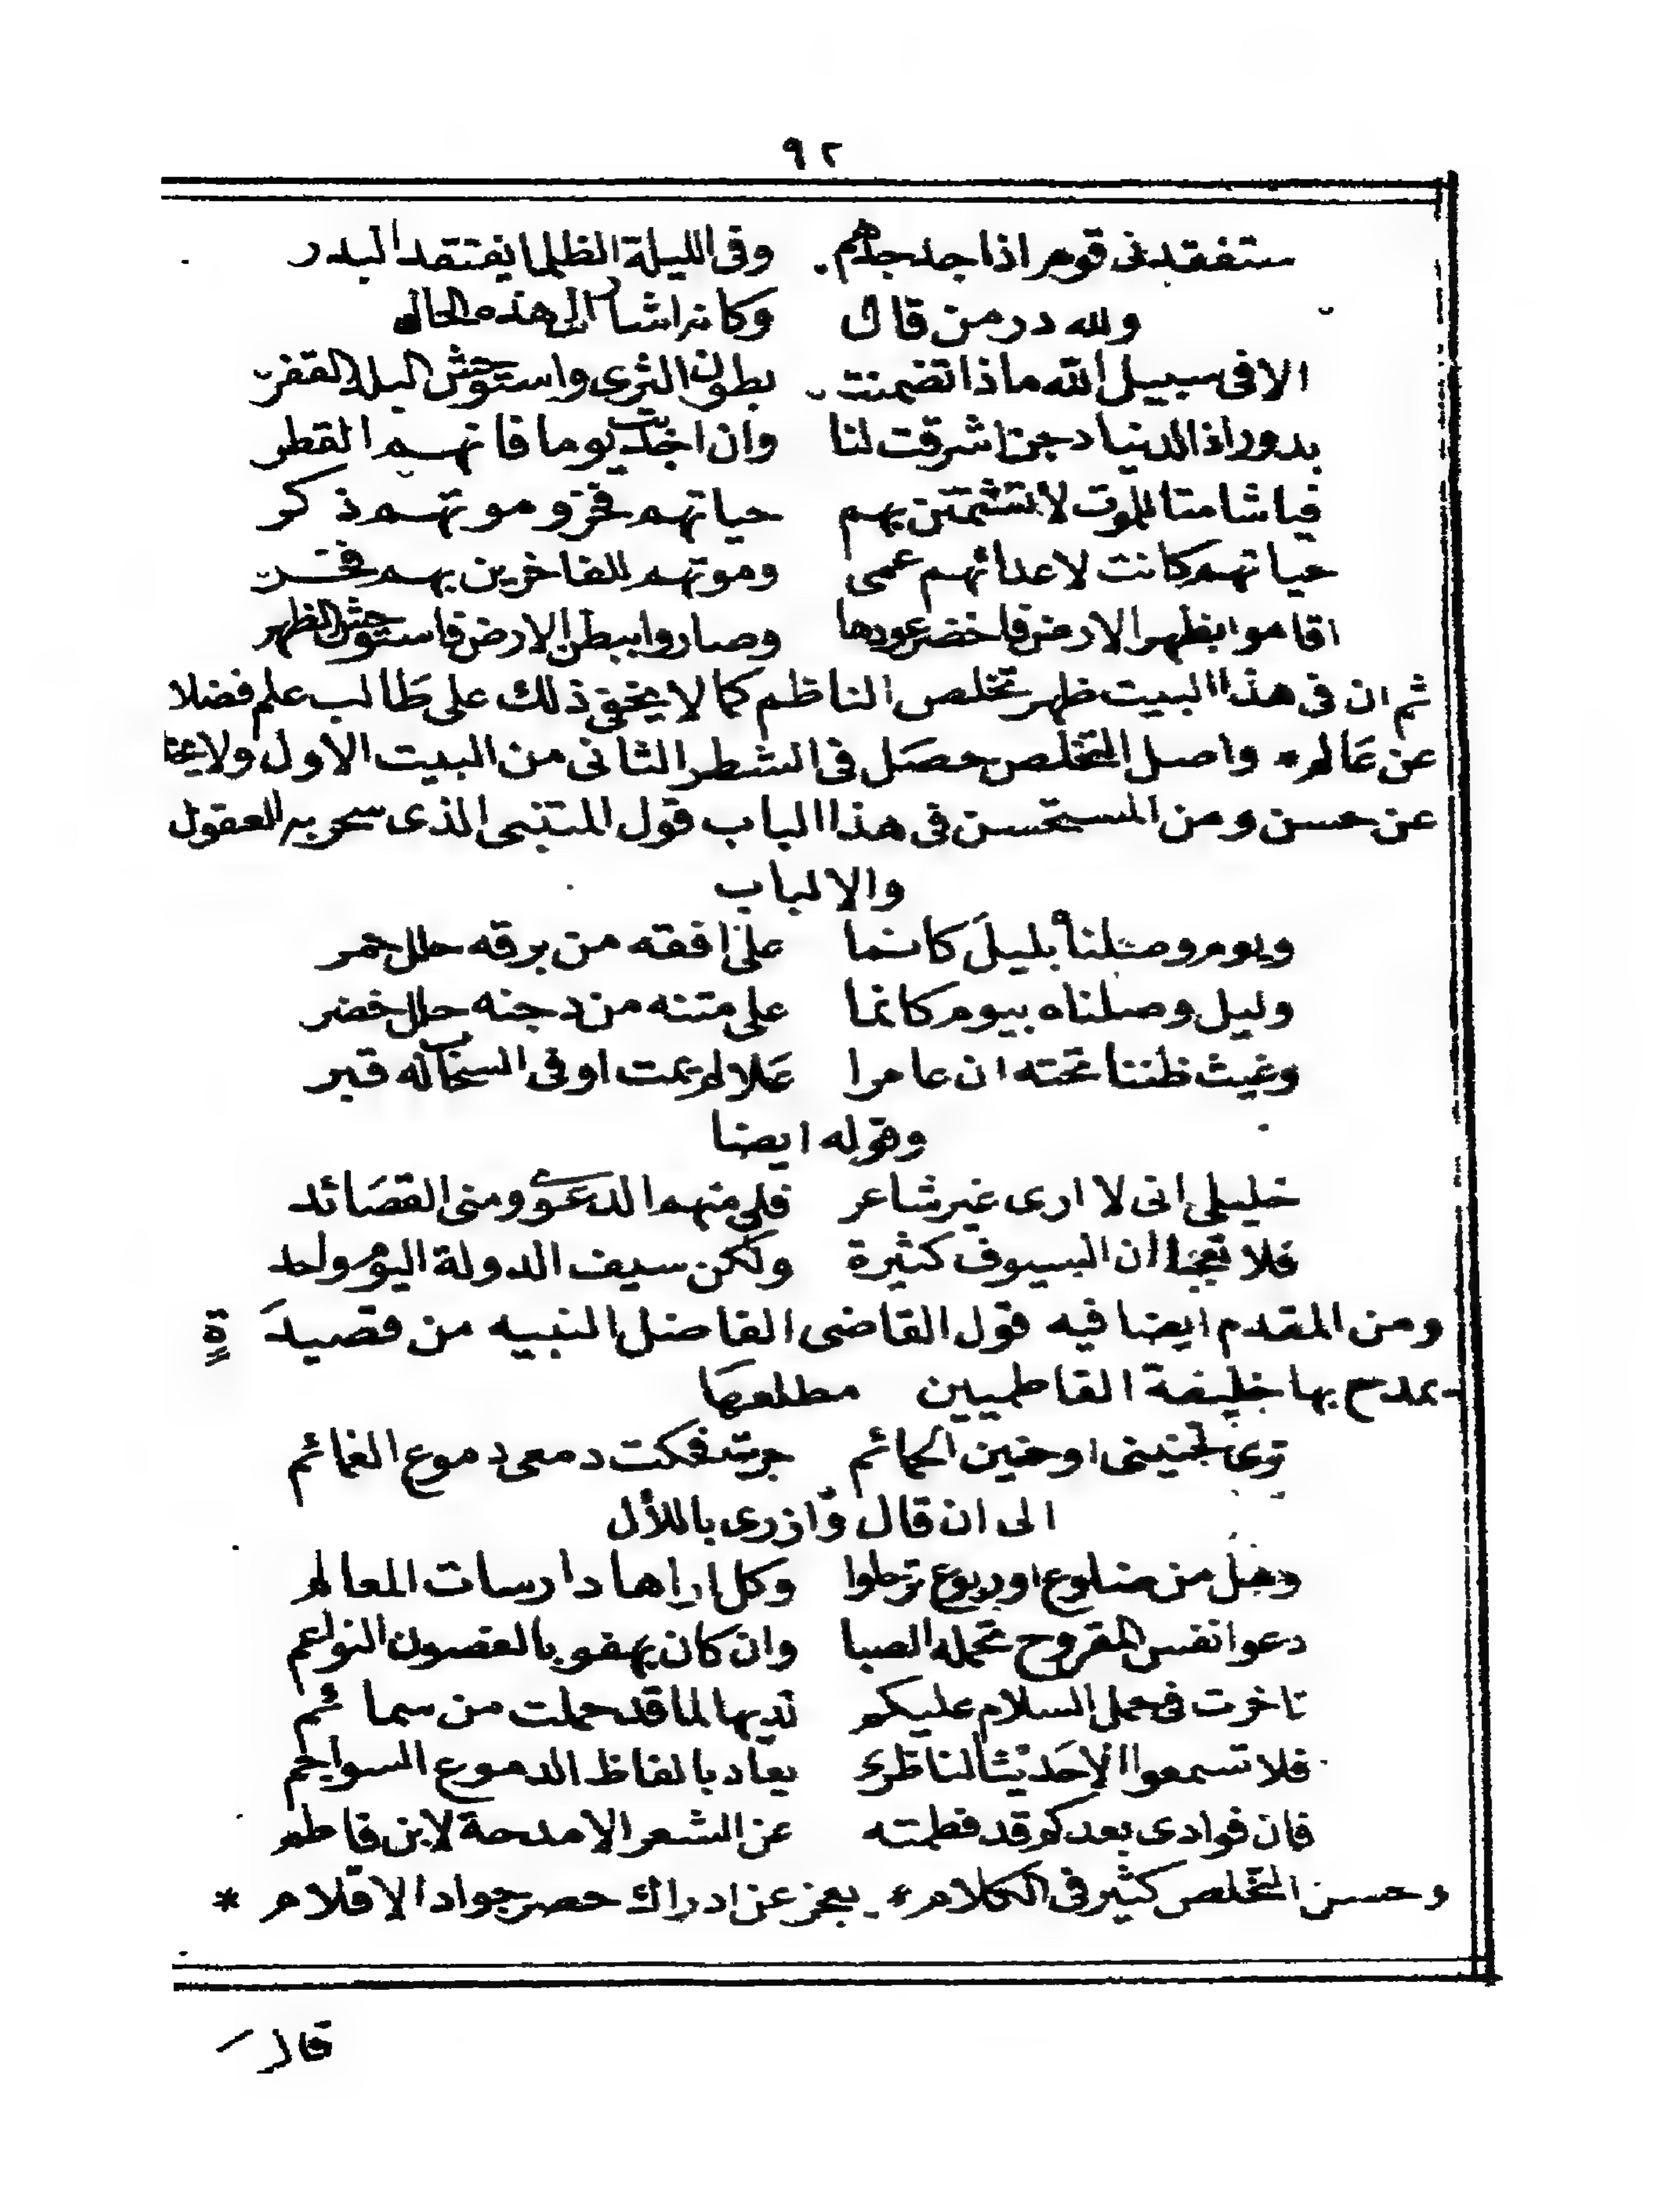 ٩٢
ستفقدنى قومى اذا جد جدهم وفى الليلة الظلما يفتقد البدر
ولله در من قال وكانه اشار الى هذه الحاله
الا فى سبيل الله ماذا تضمنت بطون الثرى واستوحش البلد القفر
بدور اذا الدنيا دجن اشرقت لنا وان اجدبت يوما فانهم القطر
فيا شامتا بالموت لا تشمتن بهم حياتهم فخر وموتهم ذكر
حياتهم كانت لاعدائهم عمى وموتهم للفاخرين بهم فخر
اقاموا بظهر الارض فاخضر عودها وصاروا ببطن الارض فاستوحش الظهر
ثم ان فى هذا البيت ظهر تخلص الناظم كما لا يخفى ذلك على طالب علم فضلا
عن عالم * واصل التخلص حصل فى الشطر الثانى من البيت الاول ولا
عن حسن ومن المستحسن فى هذا الباب قول المتنبى الذى سحر به العقول
والالباب
ويوم وصلناه بليل كانما على افقه من برقه حلل حمر
وليل وصلناه بيوم كانما على متنه من دجنه حلل خضر
وغيث ظننا تحته ان عامرا علا لم يمت او فى السحاب له قبر
وقوله ايضا
خليلى انى لا ارى غير شاعر فلى منهم الدعوى ومنى القصائد
فلا تعجبا ان السيوف كثيرة ولكن سيف الدولة اليوم واحد
ومن المقدم ايضا فيه قول القاضى الفاضل النبيه من قصيدة
يمدح بها خليفة الفاطميين مطلعها
ترى لحنينى او حنين الحمائم جرت فحكت دمعى دموع الغمائم
الى ان قال وازرى باللأل
وهل من ضلوع او ربوع ترحلوا وكل اراها دارسات المعالم
دعوا نفس المقروح تحمله الصبا وان كان يهفو بالغصون النواعم
تاخرت فى حمل السلام عليكم لديها لما قد حملت من سمائم
فلا تسمعوا الا حديثا لناظرى يعاد بالفاظ الدموع السواجم
فان فوادى بعدكم قد فطمته عن الشعر الا مدحة لابن فاطم
وحسن التخلص كثير فى الكلام * يعجز عن ادراك حصر جواد الاقلام *
قال